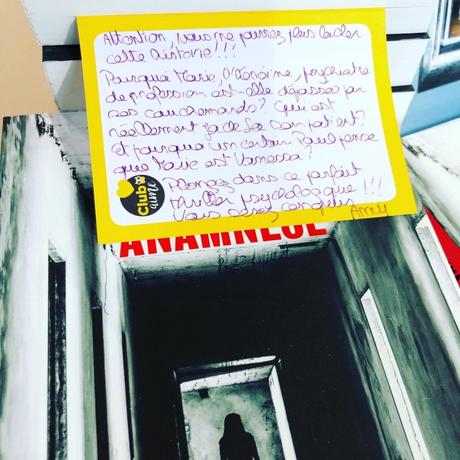 Attention, vous ne pourrez plus lâcher
cette histoire !!!
Pourquoi Marie, l'héroïne, psychiatre
de profession est-elle dépassée par
ses cauchemards ? Qui est
réellement son patient ?
et pourquoi un certain Paul pense
que Marie est Vanessa ?
Plongez dans ce parfait
thriller psychologique !!!
Vous serez conquis
Club
aime
ANAMNÈSE